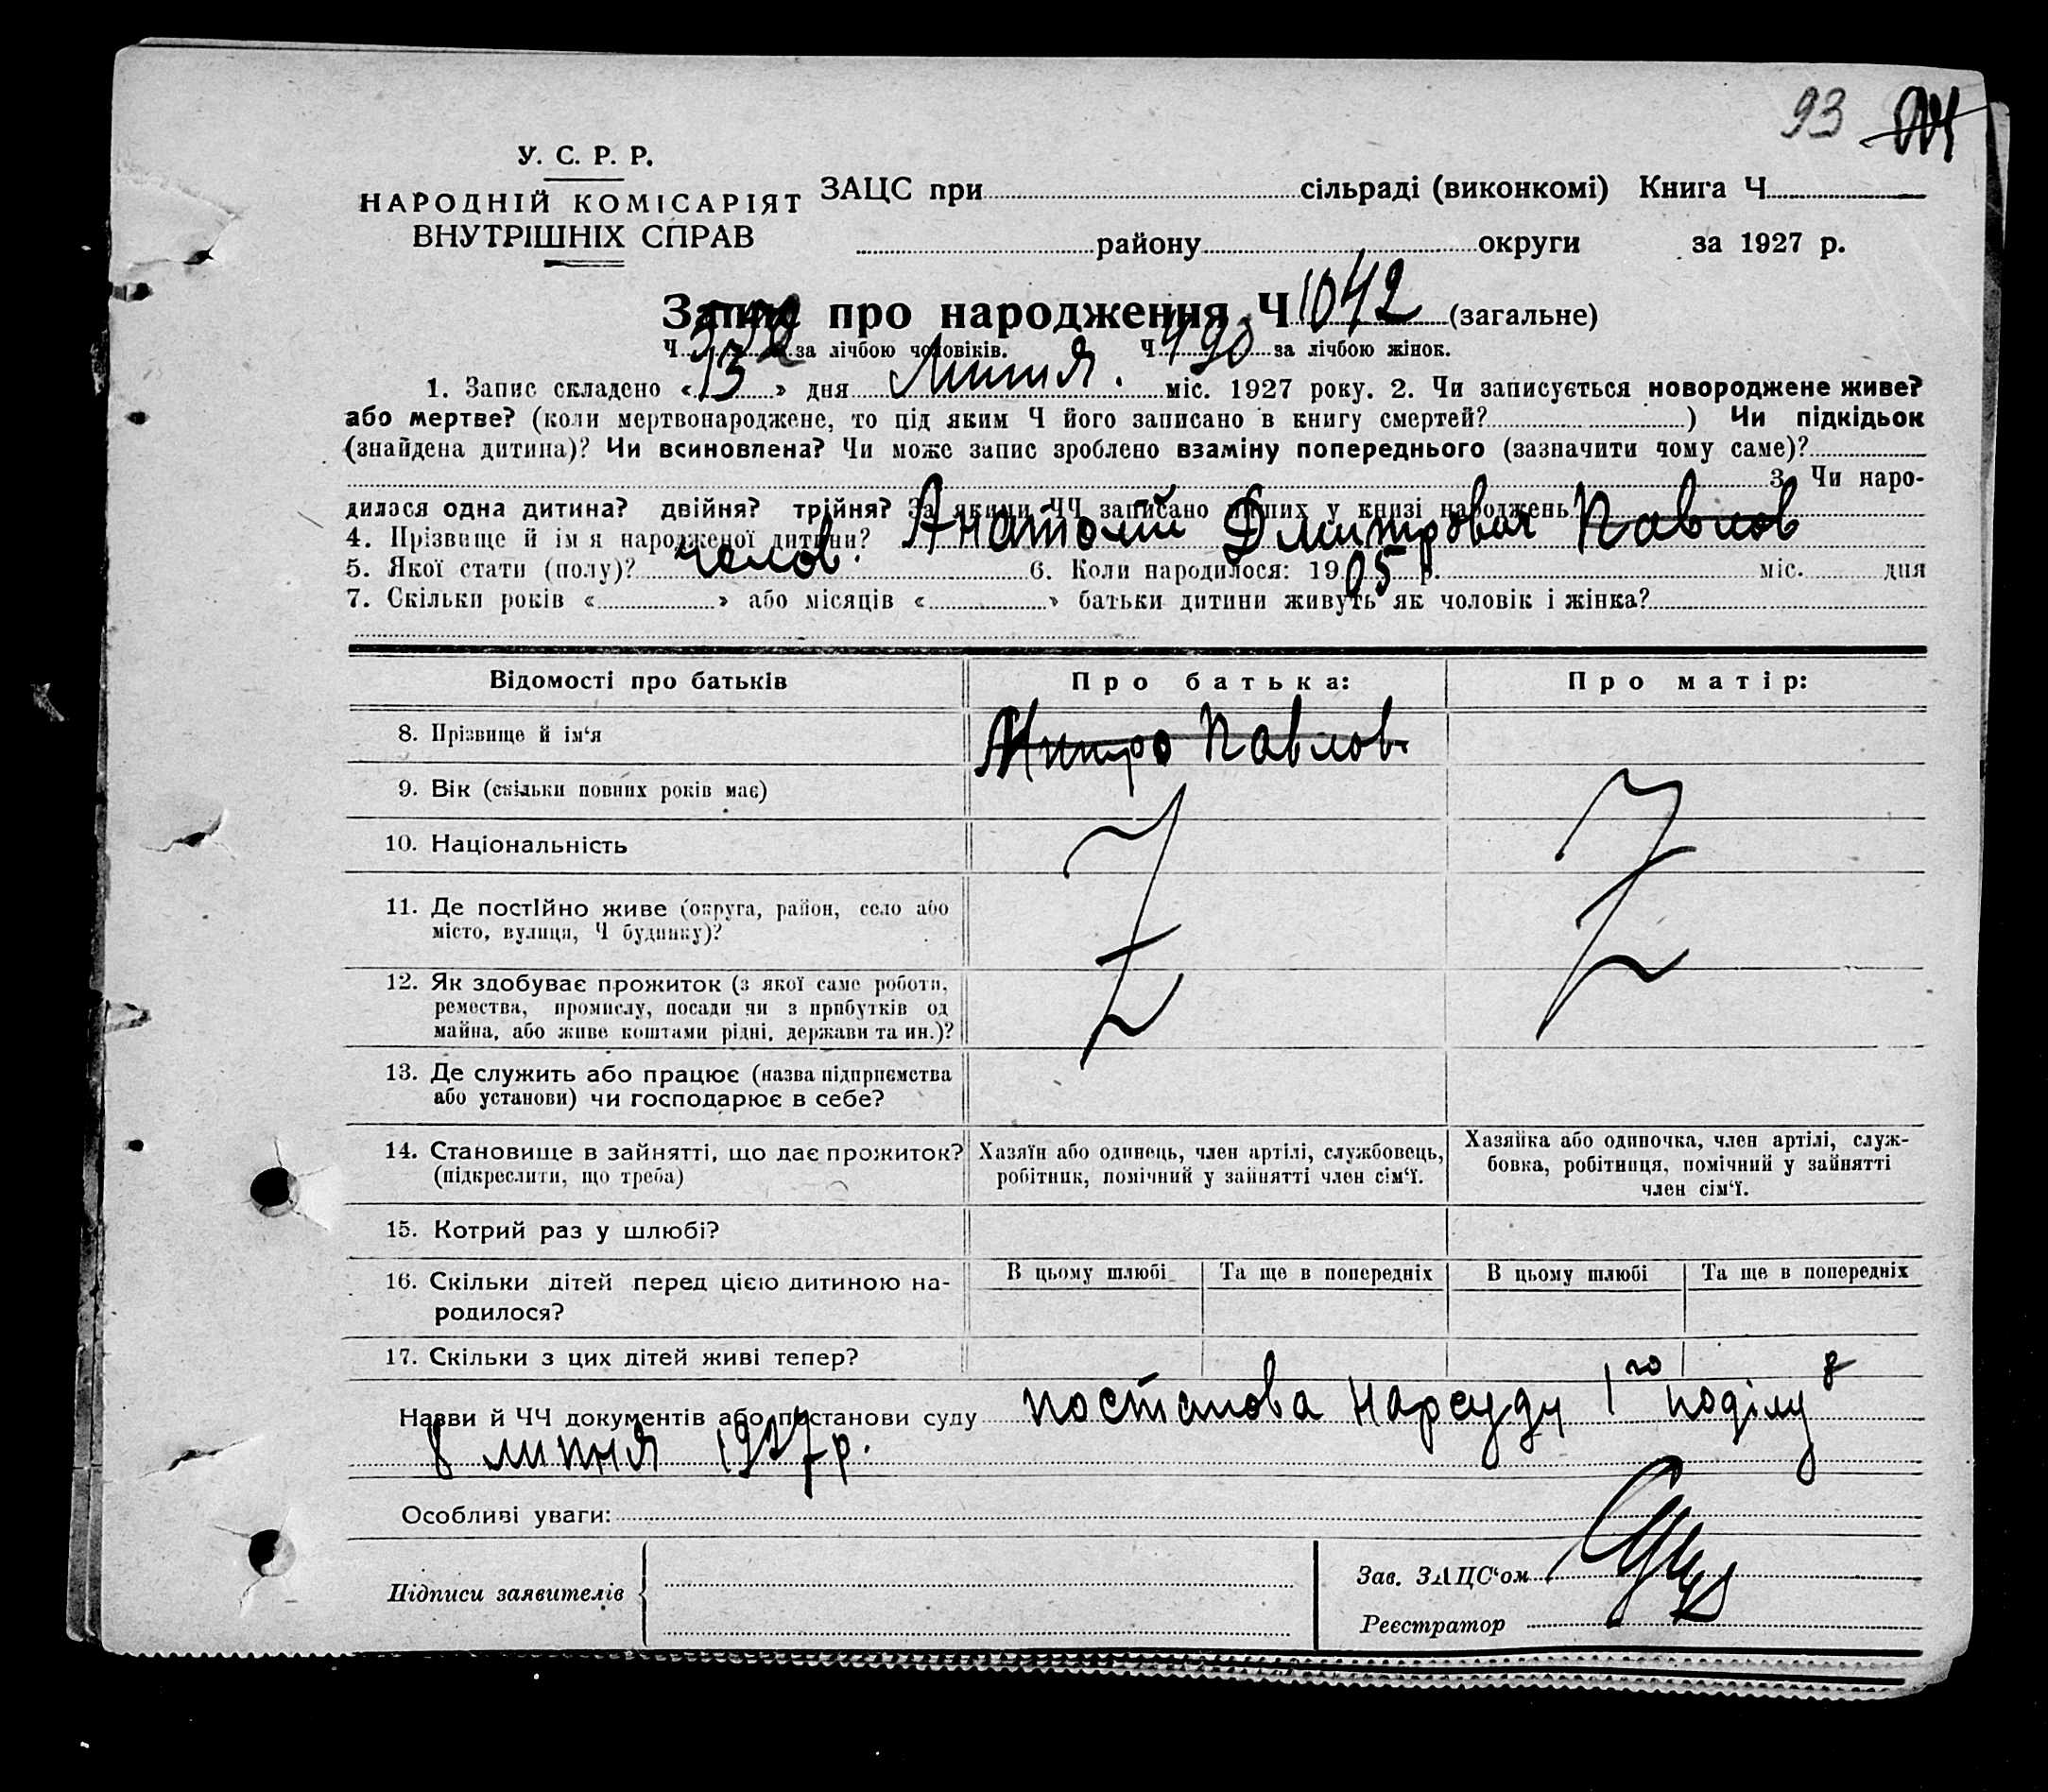 93
У. С. Р. Р.
НАРОДНІЙ КОМІСАРІЯТ
ВНУТРІШНІХ СПРАВ
ЗАЦС при сільраді (виконкомі) Книга Ч
району округи за 1927 р.
Запис про народження Ч 1042 (загальне)
Ч 552 за лічбою чоловіків. Ч 490 за лічбою жінок.
1. Запис складено « 13 » дня Липня. міс. 1927 року. 2. Чи записується новороджене живе?
або мертве? (коли мертвонароджене, то під яким Ч його записано в книгу смертей? ) Чи підкідьок
(знайдена дитина)? Чи всиновлена? Чи може запис зроблено взаміну попереднього (зазначити чому саме)?
3. Чи наро-
дилося одна дитина? двійня? трійня? За якими ЧЧ записано інших у книзі народжень?
4. Прізвище й ім'я народженої дитини? Анатолій Дмитрович Павлов
5. Якої стати (полу)? челов. 6. Коли народилося: 19 05 р. міс. дня
7. Скільки років « » або місяців « » батьки дитини живуть як чоловік і жінка?
Відомості про батьків Про батька: Про матір:
8. Прізвище й ім'я Митро Павлов.
9. Вік (скільки повних років має)
10. Національність
11. Де постійно живе (округа, район, село або
місто, вулиця, Ч будинку)?
12. Як здобуває прожиток (з якої саме роботи,
ремества, промислу, посади чи з прибутків од
майна, або живе коштами рідні, держави та ин.)?
13. Де служить або працює (назва підприємства
або установи) чи господарює в себе?
14. Становище в зайнятті, що дає прожиток?
(підкреслити, що треба)
Хазяїн або одинець, член артілі, службовець,
робітник, помічний у зайнятті член сім'ї.
Хазяйка або одиночка, член артілі, служ-
бовка, робітниця, помічний у зайнятті
член сім'ї.
15. Котрий раз у шлюбі?
16. Скільки дітей перед цією дитиною на-
родилося?
В цьому шлюбі Та ще в попередніх В цьому шлюбі Та ще в попередніх
17. Скільки з цих дітей живі тепер?
Назви й ЧЧ документів або постанови суду постанова Нарсуду 1го поділу
8 липня 1927 р.
Особливі уваги:
Підписи заявителів
Зав. ЗАЦС'ом
Реєстратор